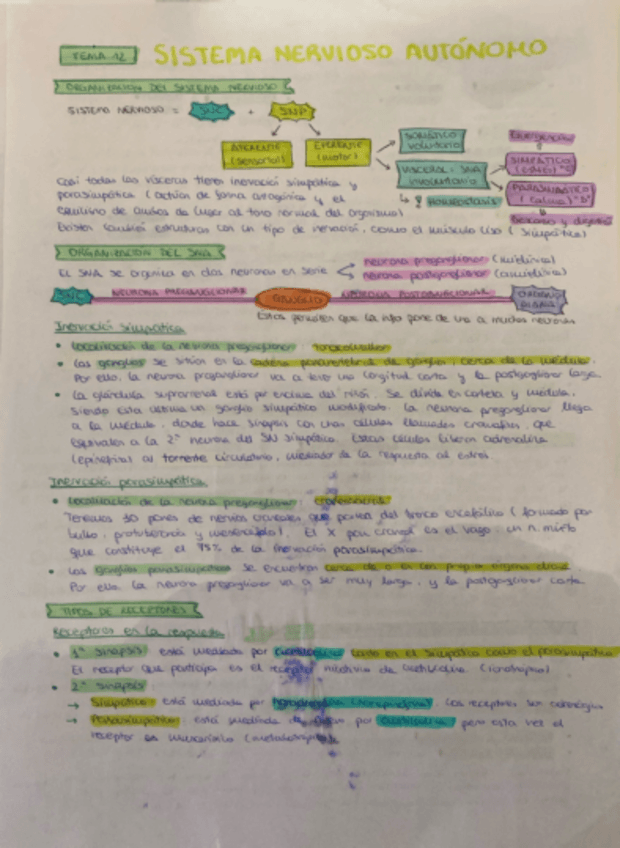 TEMA 12 SISTEMA NERVIOSO AUTÓNOMO
ORGANIZACIÓN DEL SISTEMA NERVIOSO
SISTEMA NERVIOSO = SNC + SNP
AFERENTE (sensorial) EFERENTE (motor) SOMÁTICO voluntario
VISCERAL: SNA involuntario SIMPÁTICO (estrés)
PARASIMPÁTICO (calma)
HOMEOSTASIS
Casi todas las vísceras tienen inervación simpática y
parasimpática (actúan de forma antagónica y el
equilibrio de ambos da lugar al tono normal del organismo)
Existen también estructuras con un tipo de inervación, como el músculo liso (simpático)
ORGANIZACIÓN DEL SNA
EL SNA se organiza en dos neuronas en serie
neurona preganglionar (mielínica)
neurona postganglionar (amielínica)
SNC NEURONA PREGANGLIONAR GANGLIO NEURONA POSTGANGLIONAR ÓRGANO
Estos permiten que la info pase de una a muchas neuronas
Inervación simpática
• Localización de la neurona preganglionar: toracolumbar
• Las ganglios se sitúan en la cadena paravertebral de ganglios, cerca de la médula.
Por ello, la neurona preganglionar va a tener una longitud corta y la postganglionar larga.
• La glándula suprarrenal está por encima del riñón. Se divide en corteza y médula,
siendo esta última un ganglio simpático modificado. La neurona preganglionar llega
a la médula, donde hace sinapsis con unas células llamadas cromafines, que
equivalen a la 2ª neurona del SN simpático. Estas células liberan adrenalina
(epinefrina) al torrente circulatorio, mediador de la respuesta al estrés.
Inervación parasimpática
• Localización de la neurona preganglionar: craneosacral
Tenemos 10 pares de nervios craneales que parten del tronco encefálico (formado por
bulbo, protuberancia y mesencéfalo). El X par craneal es el vago, un n. mixto
que constituye el 75% de la inervación parasimpática.
• Los ganglios parasimpáticos se encuentran cerca de o en el propio órgano diana
Por ello, la neurona preganglionar va a ser muy larga, y la postganglionar corta.
TIPOS DE RECEPTORES
Receptores en la respuesta
• 1ª sinapsis: está mediada por acetilcolina tanto en el simpático como el parasimpático
El receptor que participa es el receptor nicotínico de acetilcolina (ionotrópico)
• 2ª sinapsis
→ Simpático: está mediada por noradrenalina (norepinefrina). Los receptores son adrenérgicos
→ Parasimpático: está mediada de nuevo por acetilcolina pero esta vez el
receptor es muscarínico (metabotrópico)